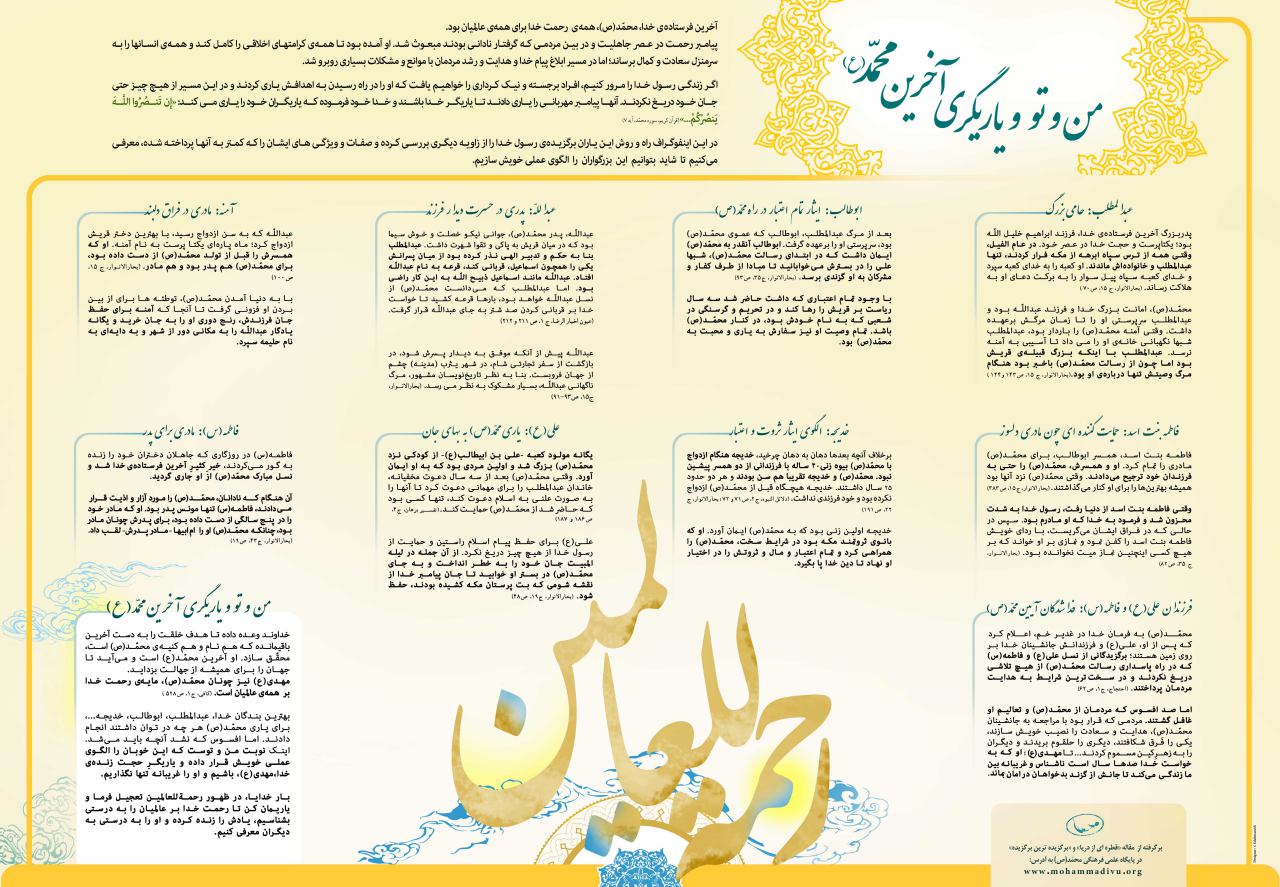 من و تو و یاریگری آخرین محمّد(ع)
آخرین فرستاده‌ی خدا، محمّد(ص)، همه‌ی رحمت خدا برای همه‌ی عالمیان بود.
پیامبر رحمت در عصر جاهلیت و در بین مردمی که گرفتار نادانی بودند مبعوث شد. او آمده بود تا همه‌ی کرامتهای اخلاقی را کامل کند و همه‌ی انسانها را به
سرمنزل سعادت و کمال برساند؛ اما در مسیر ابلاغ پیام خدا و هدایت و رشد مردمان با موانع و مشکلات بسیاری روبرو شد.
اگر زندگی رسول خدا را مرور کنیم، افراد برجسته و نیک کرداری را خواهیم یافت که او را در راه رسیدن به اهدافش یاری کردند و در این مسیر از هیچ چیز حتی
جان خود دریغ نکردند. آنها پیامبر مهربانی را یاری دادند تا یاریگر خدا باشند و خدا خود فرموده که یاریگران خود را یاری می کند: «إِن تَنصُرُوا اللَّهَ
یَنصُرْکُمْ...» (قرآن کریم، سوره محمّد، آیه ۷)
در این اینفوگراف راه و روش این یاران برگزیده‌ی رسول خدا را از زاویه دیگری بررسی کرده و صفات و ویژگی های ایشان را که کمتر به آنها پرداخته شده، معرفی
می‌کنیم تا شاید بتوانیم این بزرگواران را الگوی عملی خویش سازیم.
عبدالمطلب: حامی بزرگ
پدربزرگ آخرین فرستاده‌ی خدا، فرزند ابراهیم خلیل اللّه
بود؛ یکتاپرست و حجت خدا در عصر خود. در عام الفیل،
وقتی همه از ترس سپاه ابرهه از مکه فرار کردند، تنها
عبدالمطلب و خانواده‌اش ماندند. او کعبه را به خدای کعبه سپرد
و خدای کعبه سپاه پیل سوار را به برکت دعای او به
هلاکت رساند. (بحارالانوار، ج ۱۵، ص ۷۰)
محمّد(ص)، امانت بزرگ خدا و فرزند عبداللّه بود و
عبدالمطلب سرپرستی او را تا زمان مرگش برعهده
داشت. وقتی آمنه محمّد(ص) را باردار بود، عبدالمطلب
شبها نگهبانی خانه‌ی او را می داد تا آسیبی به آمنه
نرسد. عبدالمطلب با اینکه بزرگ قبیله‌ی قریش
بود اما چون از رسالت محمّد(ص) باخبر بود هنگام
مرگ وصیتش تنها درباره‌ی او بود. (بحارالانوار، ج ۱۵، ص ۱۴۳ و ۱۴۴)
ابوطالب: ایثار تمام اعتبار در راه محمّد(ص)
بعد از مرگ عبدالمطلب، ابوطالب که عموی محمّد(ص)
بود، سرپرستی او را برعهده گرفت. ابوطالب آنقدر به محمّد(ص)
ایمان داشت که در ابتدای رسالت محمّد(ص)، شبها
علی را در بسترش می‌خوابانید تا مبادا از طرف کفار و
مشرکان به او گزندی برسد. (بحارالانوار، ج ۳۵، ص ۹۳)
با وجود تمام اعتباری که داشت حاضر شد سه سال
ریاست بر قریش را رها کند و در تحریم و گرسنگی در
شعبی که به نام خودش بود، در کنار محمّد(ص)
باشد. تمام وصیت او نیز سفارش به یاری و محبت به
محمّد(ص) بود.
عبداللّه: پدری در حسرت دیدار فرزند
عبداللّه، پدر محمّد(ص)، جوانی نیکو خصلت و خوش سیما
بود که در میان قریش به پاکی و تقوا شهرت داشت. عبدالمطلب
بنا به حکم و تدبیر الهی نذر کرده بود از میان پسرانش
یکی را همچون اسماعیل، قربانی کند، قرعه به نام عبداللّه
افتاد. عبداللّه مانند اسماعیل ذبیح اللّه به این کار راضی
بود. اما عبدالمطلب که می‌دانست محمّد(ص) از
نسل عبداللّه خواهد بود، بارها قرعه کشید تا خواست
خدا بر قربانی کردن صد شتر به جای عبداللّه قرار گرفت.
(عیون اخبار الرضا، ج ۱، ص ۲۱۱ و ۲۱۲)
عبداللّه پیش از آنکه موفق به دیدار پسرش شود، در
بازگشت از سفر تجارتی شام، در شهر یثرب (مدینه) چشم
از جهان فروبست. بنا به نظر تاریخ‌نویسان مشهور، مرگ
ناگهانی عبداللّه، بسیار مشکوک به نظر می رسد. (بحارالانوار،
ج۱۵، ص۹۳-۹۱)
آمنه: مادری در فراق دلبند
عبداللّه که به سن ازدواج رسید، با بهترین دختر قریش
ازدواج کرد؛ ماه پاره‌ای یکتا پرست به نام آمنه. او که
همسرش را قبل از تولد محمّد(ص) از دست داده بود،
برای محمّد(ص) هم پدر بود و هم مادر. (بحارالانوار، ج ۱۵،
ص ۱۰۰)
با به دنیا آمدن محمّد(ص)، توطئه ها برای از بین
بردن او فزونی گرفت تا آنجا که آمنه برای حفظ
جان فرزندش، رنج دوری او را به جان خرید و یگانه
یادگار عبداللّه را به مکانی دور از شهر و به دایه‌ای به
نام حلیمه سپرد.
فاطمه بنت اسد: حمایت کننده ای چون مادری دلسوز
فاطمه بنت اسد، همسر ابوطالب، برای محمّد(ص)
مادری را تمام کرد. او و همسرش، محمّد(ص) را حتی به
فرزندان خود ترجیح می‌دادند. وقتی محمّد(ص) نزد آنها بود
همیشه بهترین‌ها را برای او کنار می‌گذاشتند. (بحارالانوار، ج ۱۵، ص ۳۸۳)
وقتی فاطمه بنت اسد از دنیا رفت، رسول خدا به شدت
محزون شد و فرمود به خدا که او مادرم بود. سپس در
حالی که در فراق ایشان می‌گریست، با ردای خویش
فاطمه بنت اسد را کفن نمود و نمازی بر او خواند که بر
هیچ کسی اینچنین نماز میت نخوانده بود. (بحارالانوار،
ج ۳۵، ص ۸۲)
خدیجه: الگوی ایثار ثروت و اعتبار
برخلاف آنچه بعدها دهان به دهان چرخید، خدیجه هنگام ازدواج
با محمّد(ص) بیوه زنی ۴۰ ساله با فرزندانی از دو همسر پیشین
نبود. محمّد(ص) و خدیجه تقریبا هم سن بودند و هر دو حدود
۲۵ سال داشتند. خدیجه هیچگاه قبل از محمّد(ص) ازدواج
نکرده بود و خود فرزندی نداشت. (دلائل النبوه، ج ۲، ص ۷۱ و ۷۲؛ بحارالانوار، ج
۲۲، ص ۱۹۱)
خدیجه اولین زنی بود که به محمّد(ص) ایمان آورد. او که
بانوی ثروتمند مکه بود در شرایط سخت، محمّد(ص) را
همراهی کرد و تمام اعتبار و مال و ثروتش را در اختیار
او نهاد تا دین خدا پا بگیرد.
علی(ع): یاری محمّد(ص) به بهای جان
یگانه مولود کعبه -علی بن ابیطالب(ع)- از کودکی نزد
محمّد(ص) بزرگ شد و اولین مردی بود که به او ایمان
آورد. وقتی محمّد(ص) بعد از سه سال دعوت مخفیانه،
خاندان عبدالمطلب را برای مهمانی دعوت کرد تا آنها را
به صورت علنی به اسلام دعوت کند، تنها کسی بود
که حاضر شد از محمّد(ص) حمایت کند. (تفسیر برهان، ج۴،
ص ۱۸۶ و ۱۸۷)
علی(ع) برای حفظ پیام اسلام راستین و حمایت از
رسول خدا از هیچ چیز دریغ نکرد. از آن جمله در لیله
المبیت جان خود را به خطر انداخت و به جای
محمّد(ص) در بستر او خوابید تا جان پیامبر خدا از
نقشه شومی که بت پرستان مکه کشیده بودند، حفظ
شود. (بحارالانوار، ج۱۹، ص۴۸)
فاطمه(س): مادری برای پدر
فاطمه(س) در روزگاری که جاهلان دختران خود را زنده
به گور می‌کردند، خیر کثیر آخرین فرستاده‌ی خدا شد و
نسل مبارک محمّد(ص) از او جاری گردید.
آن هنگام که نادانان، محمّد(ص) را مورد آزار و اذیت قرار
می‌دادند، فاطمه(س) تنها مونس پدر بود. او که مادر خود
را در پنج سالگی از دست داده بود، برای پدرش چونان مادر
بود، چنانکه محمّد(ص) او را ام ابیها -مادر پدرش- لقب داد.
(بحارالانوار، ج۴۳، ص۱۹)
فرزندان علی(ع) و فاطمه(س): فداشدگان آیین محمّد(ص)
محمّد(ص) به فرمان خدا در غدیر خم، اعلام کرد
که پس از او، علی(ع) و فرزندانش جانشینان خدا بر
روی زمین هستند؛ برگزیدگانی از نسل علی(ع) و فاطمه(س)
که در راه پاسداری رسالت محمّد(ص) از هیچ تلاشی
دریغ نکردند و در سخت‌ترین شرایط به هدایت
مردمان پرداختند. (احتجاج، ج ۱، ص ۶۲)
اما صد افسوس که مردمان از محمّد(ص) و تعالیم او
غافل گشتند. مردمی که قرار بود با مراجعه به جانشینان
محمّد(ص)، هدایت و سعادت را نصیب خویش سازند،
یکی را فَرق شکافتند، دیگری را حلقوم بریدند و دیگران
را به زهر کین مسموم کردند... تا مهدی(ع)؛ او که به
خواست خدا صدها سال است ناشناس و غریبانه بین
ما زندگی می‌کند تا جانش از گزند بدخواهان در امان بماند.
من و تو و یاریگری آخرین محمّد(ع)
خداوند وعده داده تا هدف خلقت را به دست آخرین
باقیمانده که هم نام و هم کنیه‌ی محمّد(ص) است،
محقّق سازد. او آخرین محمّد(ع) است و می‌آید تا
جهان را برای همیشه از جهالت بزداید.
مهدی(ع) نیز چونان محمّد(ص)، مایه‌ی رحمت خدا
بر همه‌ی عالمیان است. (کافی، ج۱، ص ۵۲۸)
بهترین بندگان خدا، عبدالمطلب، ابوطالب، خدیجه...،
برای یاری محمّد(ص) هر چه در توان داشتند انجام
دادند. اما افسوس که نشد آنچه باید می‌شد.
اینک نوبت من و توست که این خوبان را الگوی
عملی خویش قرار داده و یاریگر حجت زنده‌ی
خدا،مهدی(ع)، باشیم و او را غریبانه تنها نگذاریم.
بار خدایا، در ظهور رحمةللعالمین تعجیل فرما و
یاریمان کن تا رحمت خدا بر عالمیان را به درستی
بشناسیم، یادش را زنده کرده و او را به درستی به
دیگران معرفی کنیم.
رحمة للعالمین
برگرفته از مقاله «قطره ای از دریا» و «برگزیده ترین برگزیده»
در پایگاه علمی فرهنگی محمّد(ص) به آدرس:
www.mohammadivu.org